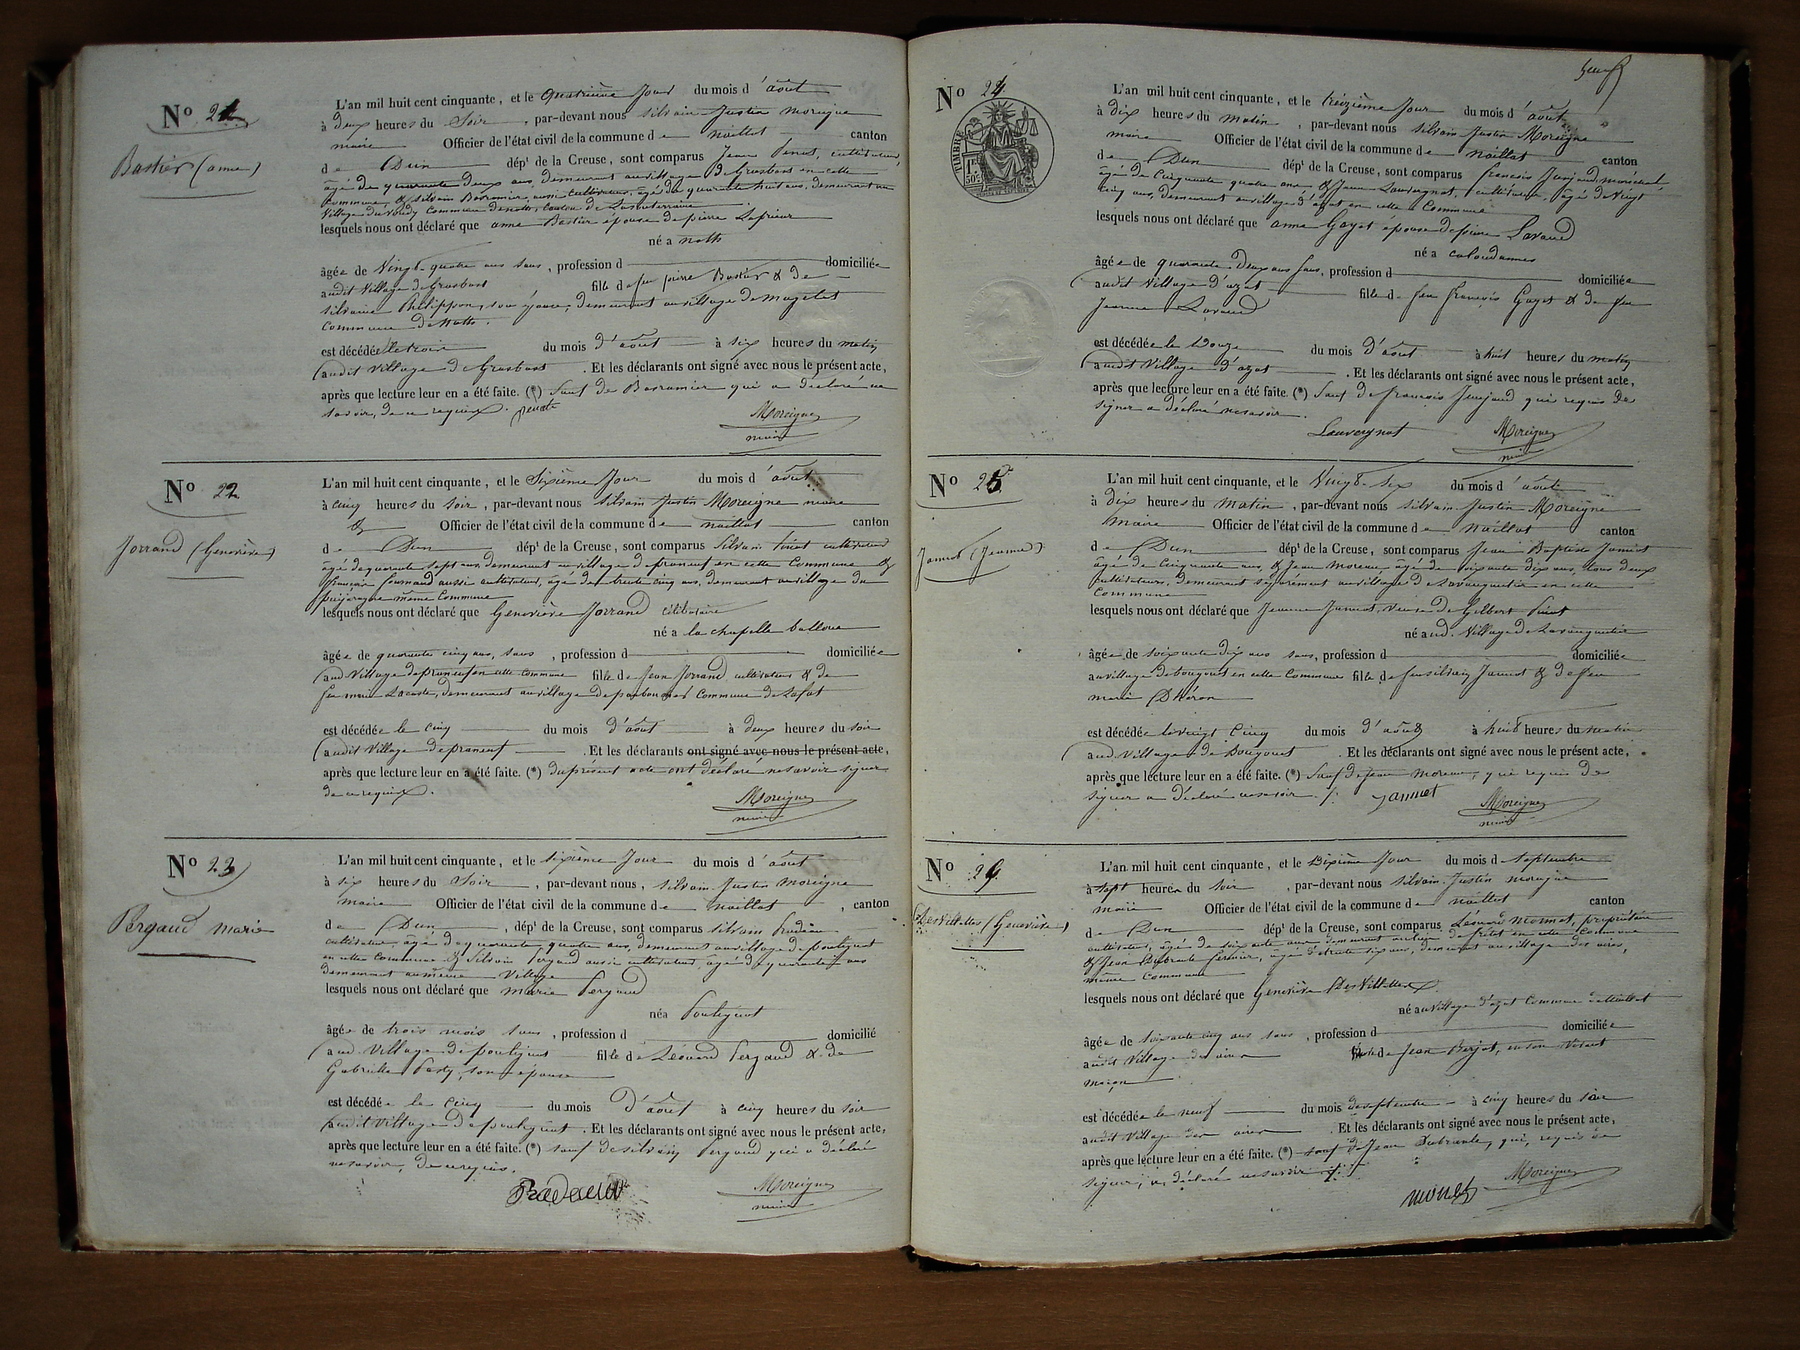 No 21
Bastier (anne)
L'an mil huit cent cinquante, et le quatrième Jour du mois d'août
à deux heures du Soir, par-devant nous silvain Justin moreigne
maire Officier de l'état civil de la commune de naillat canton
de Dun dépt de la Creuse, sont comparus Jean Penot, cultivateur,
âgé de quarante deux ans, demeurant au village de Grosbost en cette
commune, & silvain Bosramier, aussi cultivateur, âgé de quarante huit ans, demeurant au
village du commune de noth, canton de Lasouterraine
lesquels nous ont déclaré que anne Bastier épouse de pierre Lafrieur
né a noth
âgée de vingt quatre ans sans, profession d domiciliée
audit village de Grosbost fille de feu pierre Bastier & de
silvaine Philippon, son épouse, demeurant au village de
commune de Noth.
est décédée le trois du mois d'août à six heures du matin
audit village de Grosbost. Et les déclarants ont signé avec nous le présent acte,
après que lecture leur en a été faite. (*) Sauf de Bosramier qui a déclaré ne
savoir, de ce requis. penot
Moreigne
maire
No 22
Jorrand (Geneviève)
L'an mil huit cent cinquante, et le Sixième Jour du mois d'août
à cinq heures du soir, par-devant nous silvain Justin Moreigne maire
& Officier de l'état civil de la commune de naillat canton
de Dun dépt de la Creuse, sont comparus Silvain cultivateur
âgé de quarante sept ans, demeurant au village de praneuf en cette Commune &
françois aussi cultivateur, âgé de trente cinq ans, demeurant au village du
même Commune
lesquels nous ont déclaré que Geneviève Jorrand célibataire
né a la chapelle balloue
âgée de quarante cinq ans, sans, profession d domiciliée
aud. village de praneuf en cette commune fille de Jean Jorrand cultivateur & de
feu marie Lacoste, demeurant au village de commune de Lafat
est décédée le cinq du mois d'août à deux heures du soir
audit village de praneuf. Et les déclarants ont signé avec nous le présent acte,
après que lecture leur en a été faite. (*) du présent acte ont déclaré ne savoir signer
de ce requis.
Moreigne
maire
No 23
Pergaud marie
L'an mil huit cent cinquante, et le sixième Jour du mois d'août
à six heures du Soir, par-devant nous, silvain Justin moreigne
maire Officier de l'état civil de la commune de naillat, canton
de Dun, dépt de la Creuse, sont comparus silvain
cultivateur, âgé de quarante quatre ans, demeurant au village de poutignat
en cette Commune & Silvain Pergaud aussi cultivateur, âgé de quarante ans
demeurant au même Village
lesquels nous ont déclaré que marie Pergaud
né a Poutignat
âgée de trois mois sans, profession d domicilié
aud. village de poutignat fille de Léonard Pergaud & de
Gabrielle, son épouse
est décédée le cinq du mois d'août à cinq heures du soir
audit village de poutignat. Et les déclarants ont signé avec nous le présent acte,
après que lecture leur en a été faite. (*) sauf de silvain Pergaud qui a déclaré
ne savoir, de ce requis.
Moreigne
maire
neuf
No 24
TIMBRE
L'an mil huit cent cinquante, et le treizième Jour du mois d'août
à dix heures du matin, par-devant nous silvain Justin Moreigne
maire Officier de l'état civil de la commune de naillat canton
de Dun dépt de la Creuse, sont comparus françois Jeanjaud maréchal
âgé de Cinquante quatre ans & Jean Lauvergnat, cultivateur, âgé de vingt
cinq ans, demeurant au village d'azat en cette Commune
lesquels nous ont déclaré que anne Gayot épouse de pierre Lavaud
né a colondannes
âgée de quarante deux ans sans, profession d domiciliée
audit village d'azat fille de feu françois Gayot & de feu
Jeanne Lavaud
est décédée le Douze du mois d'août à huit heures du matin
audit village d'azat. Et les déclarants ont signé avec nous le présent acte,
après que lecture leur en a été faite. (*) Sauf de françois Jeanjaud qui requis de
signer a déclaré ne savoir.
Lauvergnat
Moreigne
maire
No 25
Jannot (Jeanne)
L'an mil huit cent cinquante, et le Vingt-six du mois d'août
à dix heures du Matin, par-devant nous silvain Justin Moreigne
maire Officier de l'état civil de la commune de Naillat canton
de Dun dépt de la Creuse, sont comparus Jean Baptiste Jannot
âgé de Cinquante ans, & Jean Moreau, âgé de soixante dix ans, tous deux
cultivateurs, demeurant séparément au village de en cette
commune
lesquels nous ont déclaré que Jeanne Jannot, veuve de Gilbert
né aud. village de
âgée de soixante dix ans sans, profession d domiciliée
au village de bougouet en cette Commune fille de feu silvain Jannot & de feu
marie
est décédée le vingt cinq du mois d'août à huit heures du matin
aud. village de Bougouet. Et les déclarants ont signé avec nous le présent acte,
après que lecture leur en a été faite. (*) Sauf de Jean Moreau, qui requis de
signer a déclaré ne savoir.
Jannot
Moreigne
maire
No 26
DesVillettes (Geneviève)
L'an mil huit cent cinquante, et le Dixième Jour du mois de septembre
à sept heures du soir, par-devant nous silvain Justin moreigne
maire Officier de l'état civil de la commune de naillat canton
de Dun dépt de la Creuse, sont comparus Léonard monnet, propriétaire
cultivateur, âgé de ans demeurant au lieu de en cette commune
& Jean Dubrante, âgé de trente six ans, demeurant au village des
même commune
lesquels nous ont déclaré que Geneviève DesVillettes
né au village d'azat Commune de naillat
âgée de soixante cinq ans sans, profession d domiciliée
audit village des de Jean, en son vivant
maçon
est décédée le neuf du mois de septembre à cinq heures du soir
audit village des. Et les déclarants ont signé avec nous le présent acte,
après que lecture leur en a été faite. (*) sauf de Jean Dubrante, qui, requis de
signer, a déclaré ne savoir
monet
Moreigne